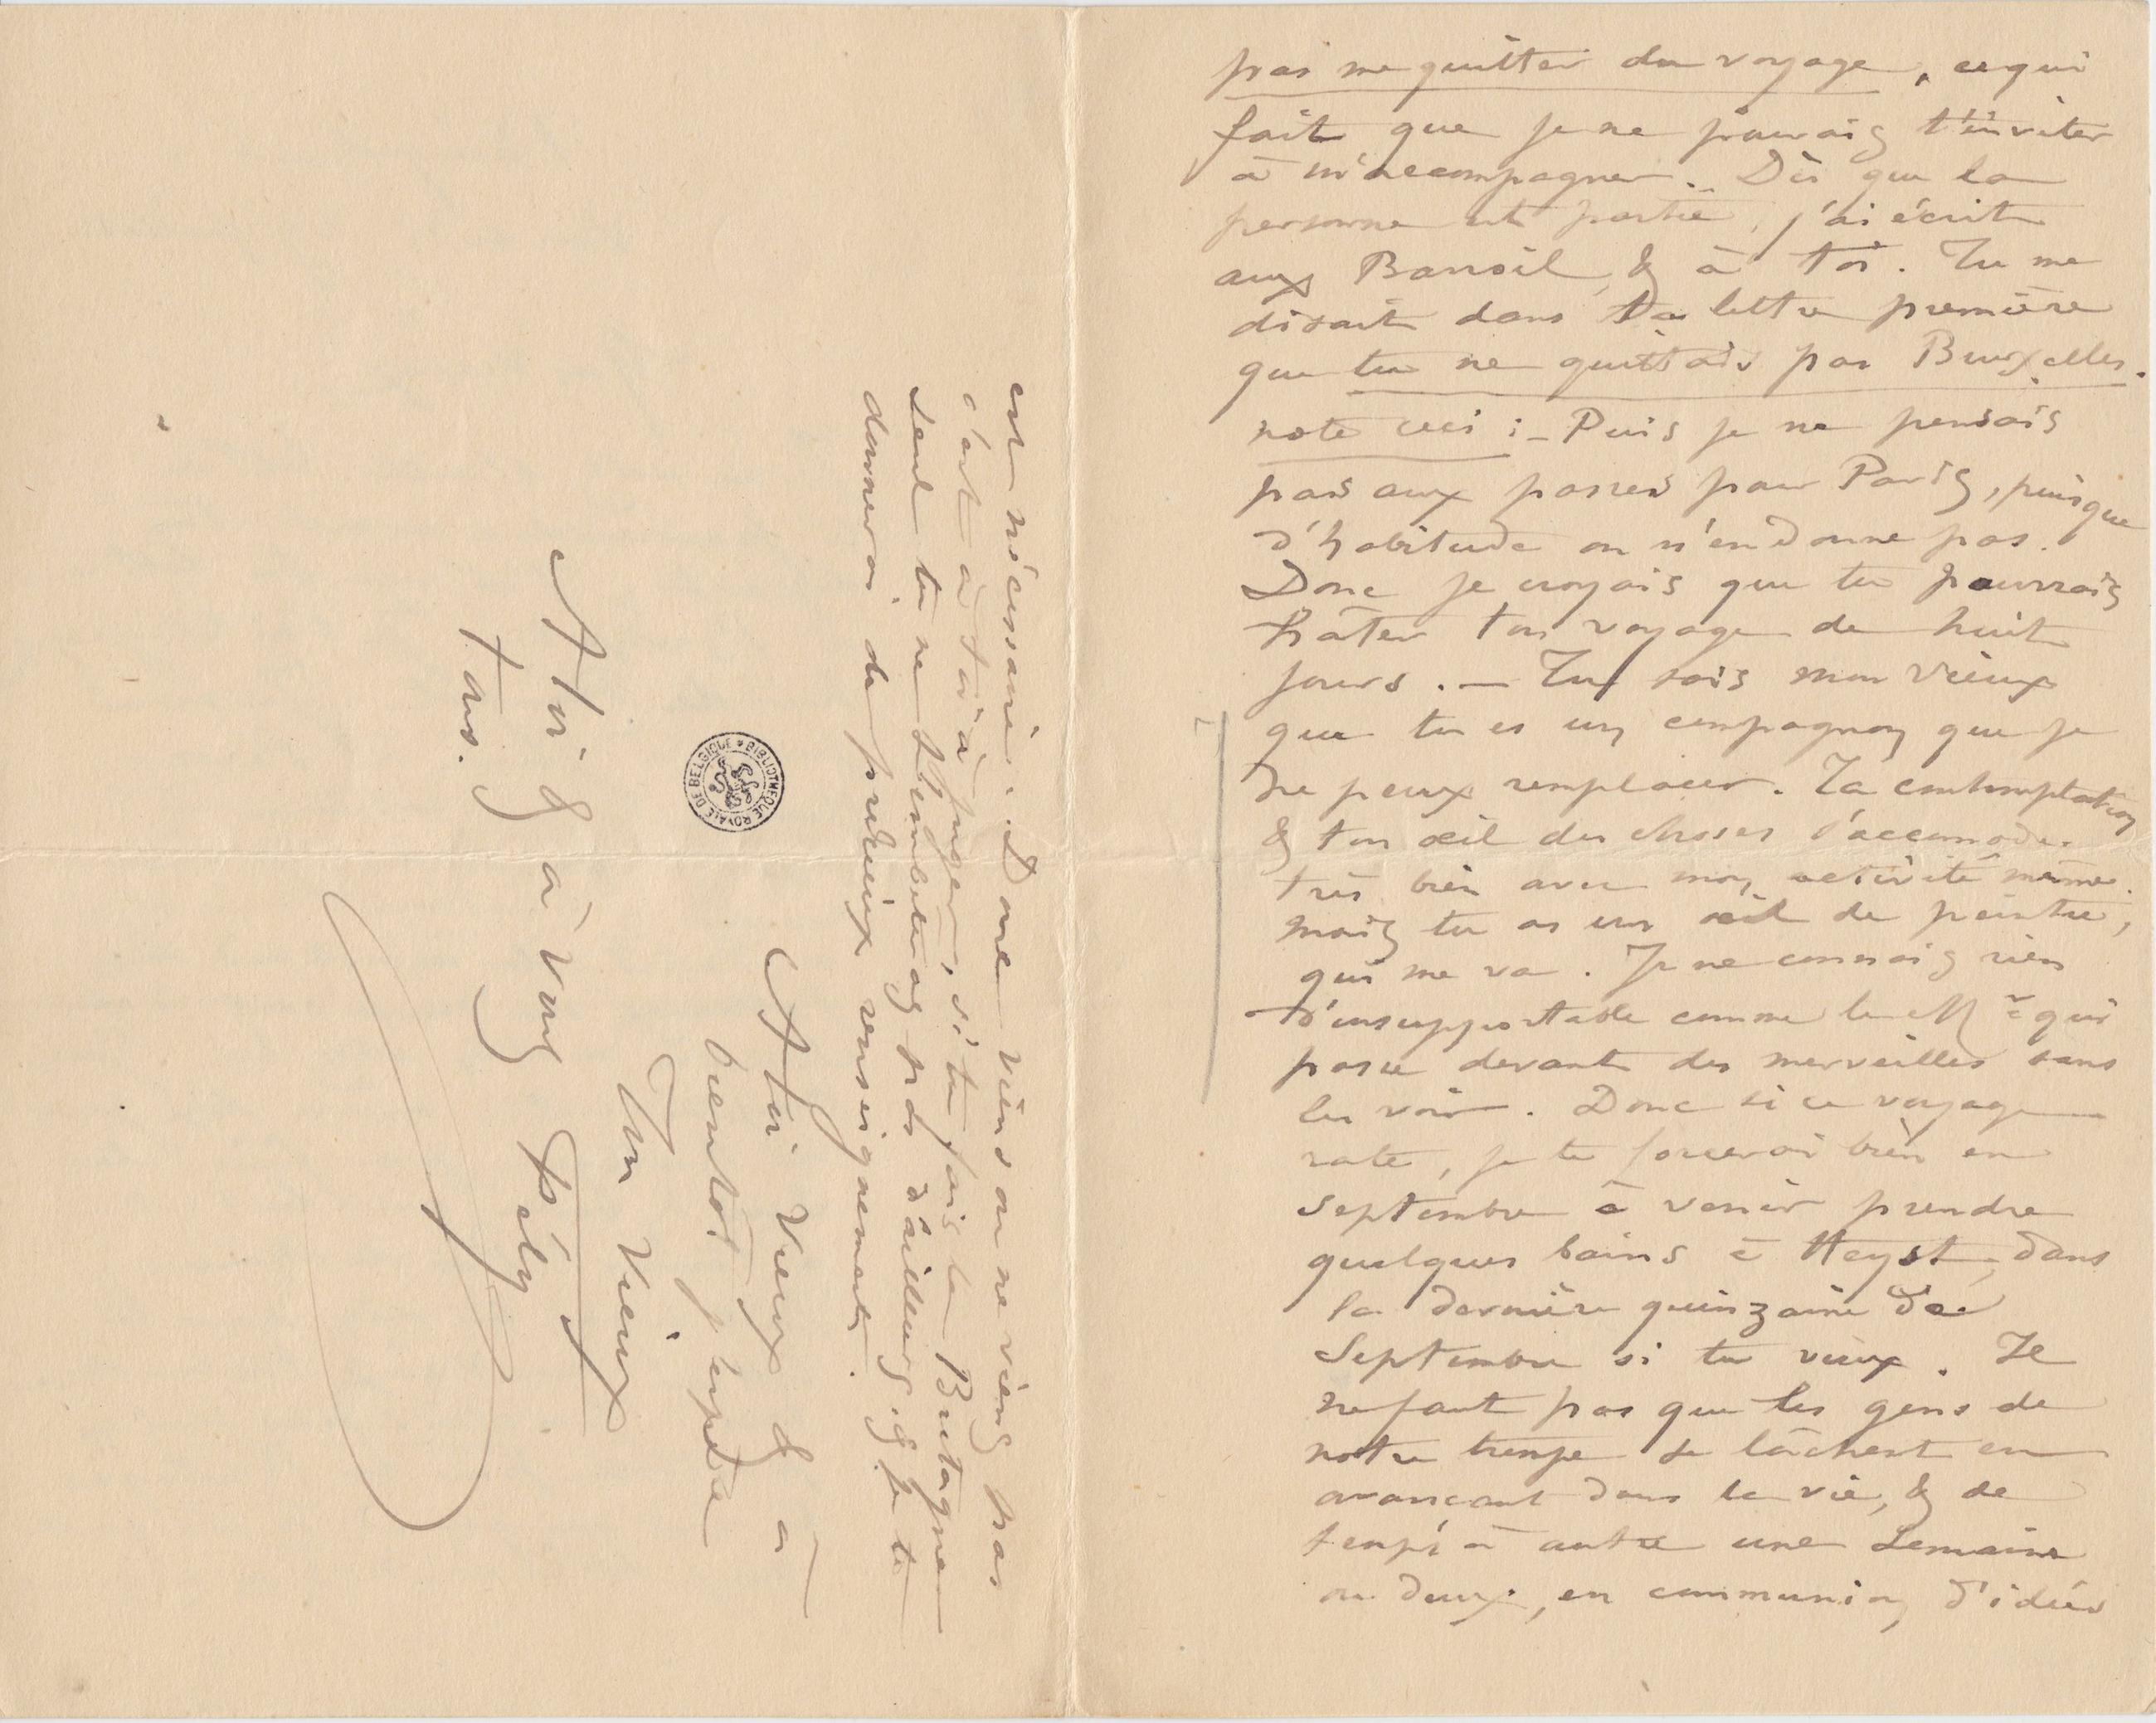 pas me quitter du voyage, ce qui
fait que je ne pouvais t'inviter
à m'accompagner. Dès que la
personne est partie, j'ai écrit
aux Bansoil, & à toi. Tu me
disait dans ta lettre première
que tu ne quittais pas Bruxelles.
note ceci : – Puis je ne pensais
pas aux passes pour Paris, puisque
d'habitude on n'en donne pas.
Donc je croyais que tu pourrais
hâter ton voyage de huit
jours. — Tu sais mon vieux
que tu es un compagnon que je
ne peux remplacer. Ta contemplation
& ton œil des choses s'accomode
très bien avec mon activité même.
mais tu as un œil de peintre,
qui me va. Je ne connais rien
d'insupportable comme le Mr qui
passe devant des merveilles sans
les voir. Donc si ce voyage
rate, je te forcerai bien en
septembre à venir prendre
quelques bains à Heyst, dans
la dernière quinzaine de
Septembre si tu veux. Il
ne faut pas que les gens de
notre trempe se lâchent en
avançant dans la vie, & de
temps à autre une semaine
ou deux, en communion d'idées
est nécessaire. Donc viens ou ne viens pas
c'est à toi à juger, si tu fais la Bretagne
seul tu ne t'embêteras pas d'ailleurs, & je te
donnerai de précieux renseignements.
A toi vieux & à
bientôt j'espère
Ton Vieux
Fély
A toi & à vous
tous.
BIBLIOTHEQUE ROYALE DE BELGIQUE